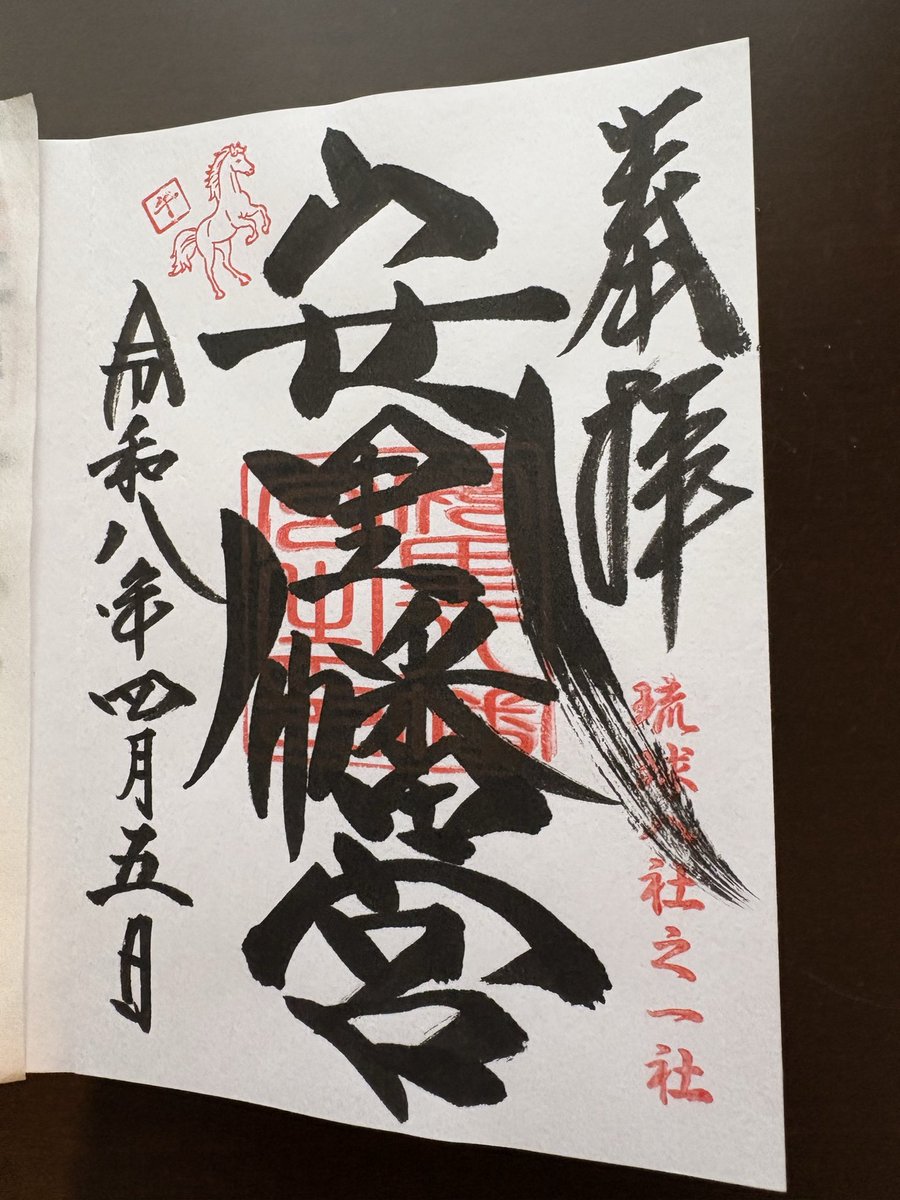 奉拝
琉球八社之一社
安里八幡宮
午
令和八年四月五日